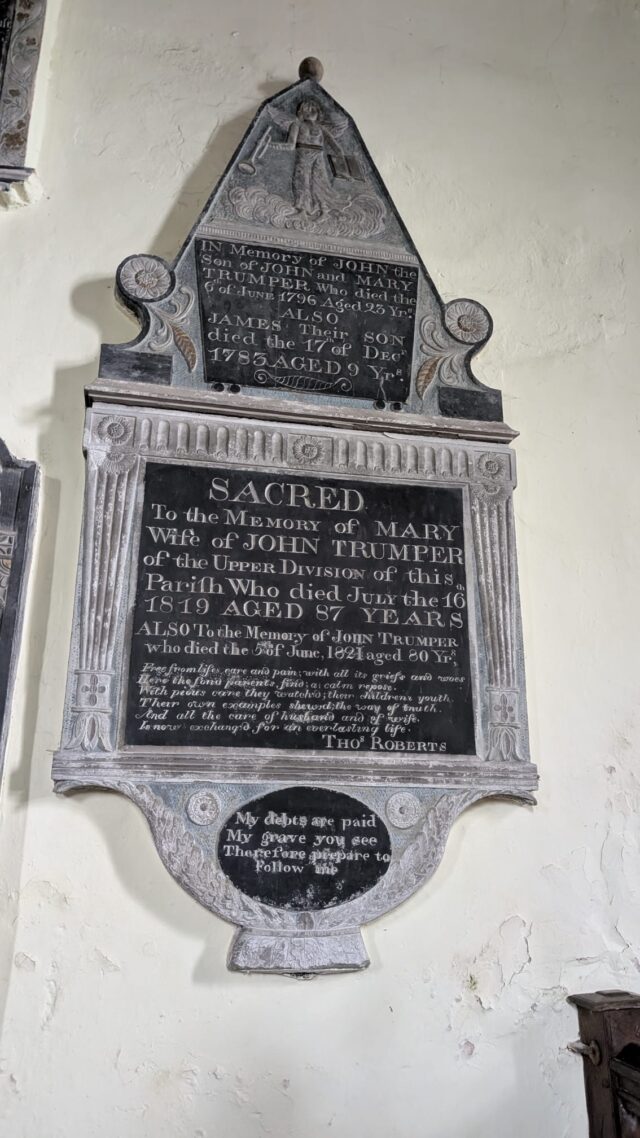 IN Memory of JOHN the
Son of JOHN and MARY
TRUMPER Who died the
6th of JUNE 1796 Aged 23 Yrs.
ALSO
JAMES Their SON
died the 17th of Decr
1783 AGED 9 Yrs.
SACRED
To the MEMORY of MARY
Wife of JOHN TRUMPER
of the UPPER DIVISION of this
Pariſh Who died JULY the 16th
1819 AGED 87 YEARS
ALSO To the Memory of JOHN TRUMPER
who died the 5th of June, 1821 aged 80 Yrs,
Free from lifes care and pain; with all its griefs and woes
Here the fond parents, find; a; calm repose.
With pious care they watch'd; their children's youth,
Their own examples shew'd; the way of truth.
And all the care of husband and of wife.
Is now exchang'd for an everlasting life.
Thos ROBERTS
My debts are paid
My grave you see
Therefore prepare to
Follow me